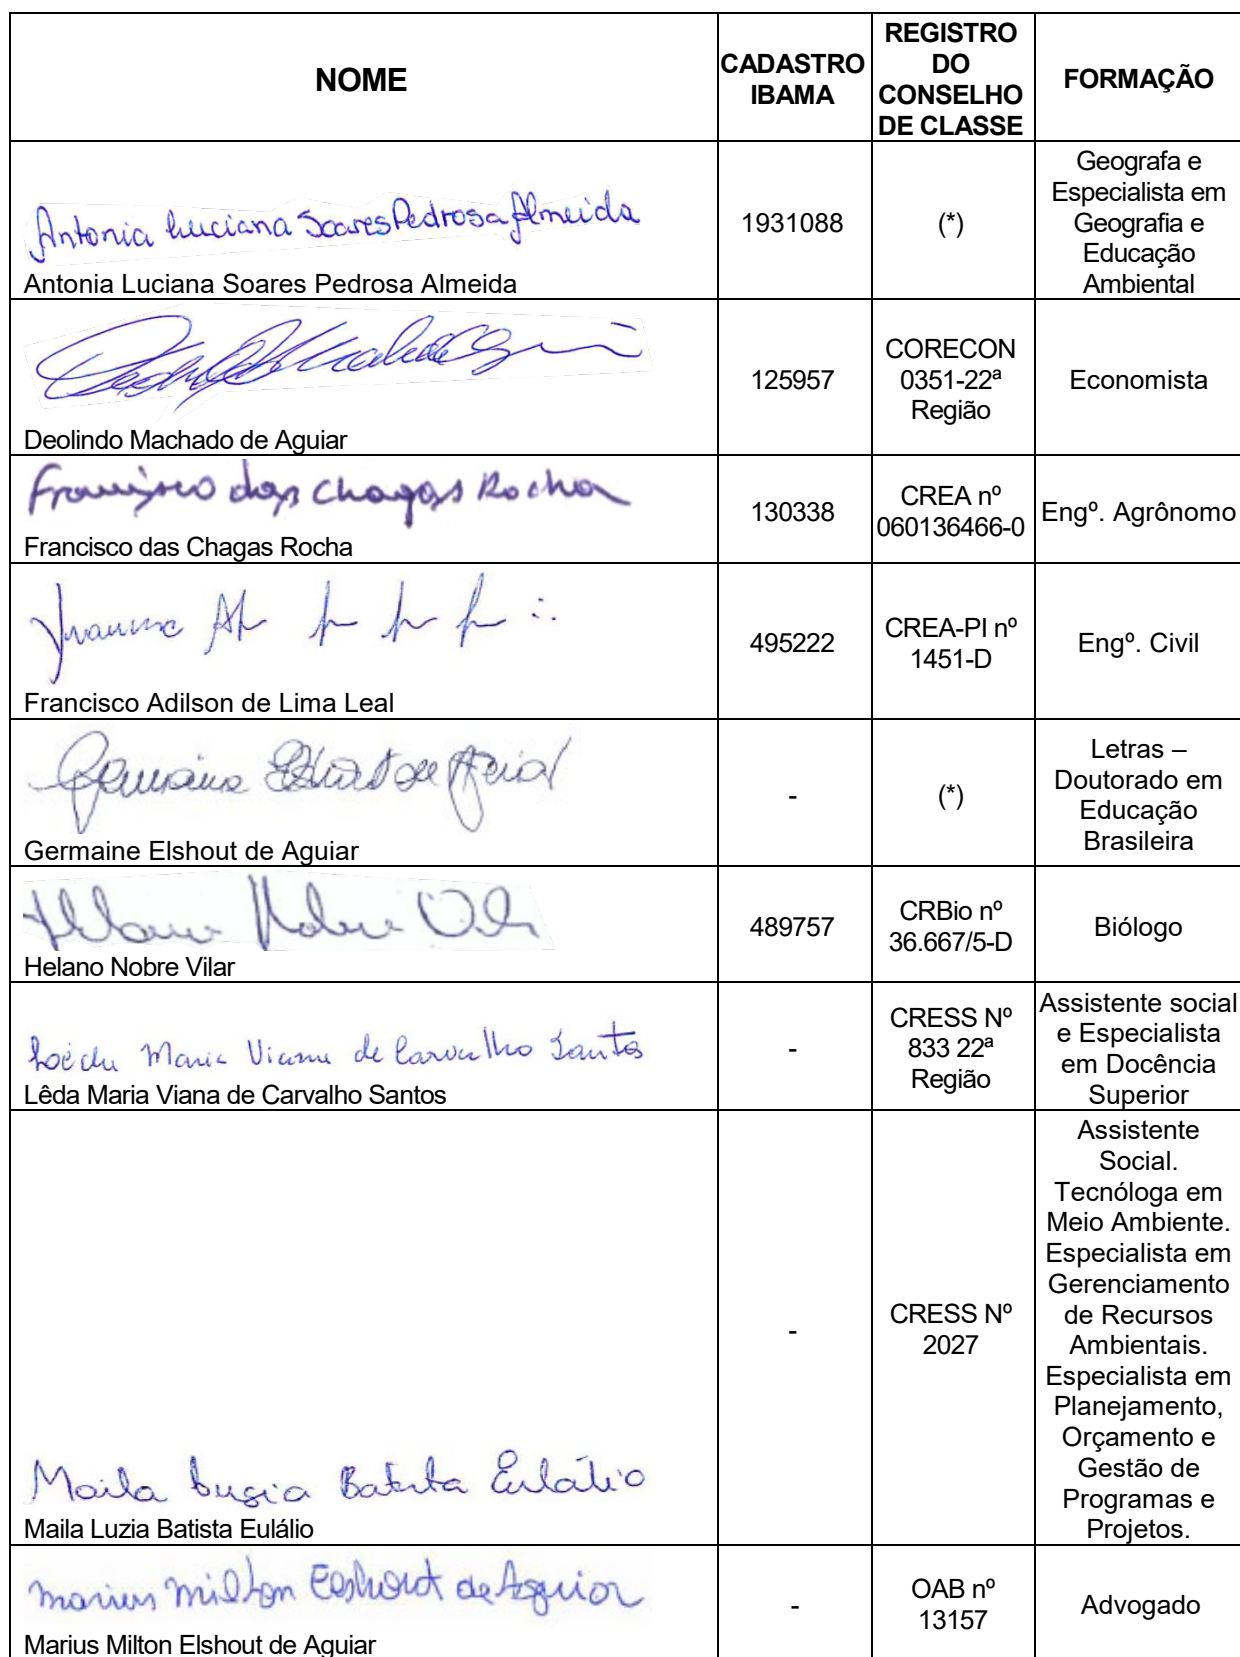 NOME
CADASTRO
IBAMA
REGISTRO
DO
CONSELHO
DE CLASSE
FORMAÇÃO
Antonia Luciana Soares Pedrosa Almeida
Antonia Luciana Soares Pedrosa Almeida
1931088
(*)
Geografa e
Especialista em
Geografia e
Educação
Ambiental
Deolindo Machado de Aguiar
125957
CORECON
0351-22ª
Região
Economista
Francisco das Chagas Rocha
Francisco das Chagas Rocha
130338
CREA nº
060136466-0
Engº. Agrônomo
Francisco Adilson de Lima Leal
495222
CREA-PI nº
1451-D
Engº. Civil
Germaine Elshout de Aguiar
-
(*)
Letras –
Doutorado em
Educação
Brasileira
Helano Nobre Vilar
489757
CRBio nº
36.667/5-D
Biólogo
Lêda Maria Viana de Carvalho Santos
Lêda Maria Viana de Carvalho Santos
-
CRESS Nº
833 22ª
Região
Assistente social
e Especialista
em Docência
Superior
Maila Luzia Batista Eulálio
Maila Luzia Batista Eulálio
-
CRESS Nº
2027
Assistente
Social.
Tecnóloga em
Meio Ambiente.
Especialista em
Gerenciamento
de Recursos
Ambientais.
Especialista em
Planejamento,
Orçamento e
Gestão de
Programas e
Projetos.
Marius Milton Elshout de Aguiar
Marius Milton Elshout de Aguiar
-
OAB nº
13157
Advogado